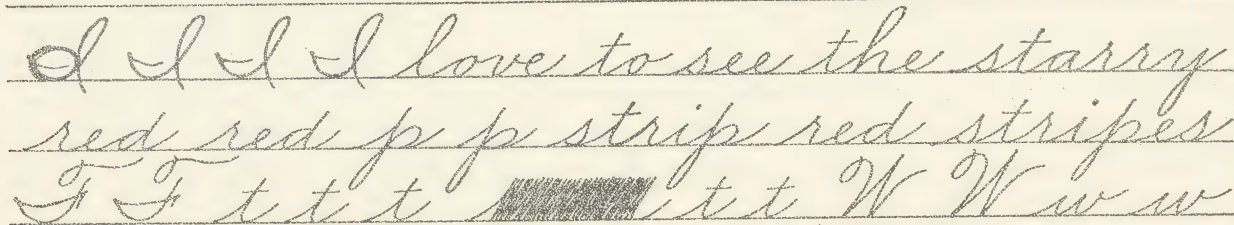 I I I I love to see the starry
red red p p strip red stripes
F F t t t t t W W w w